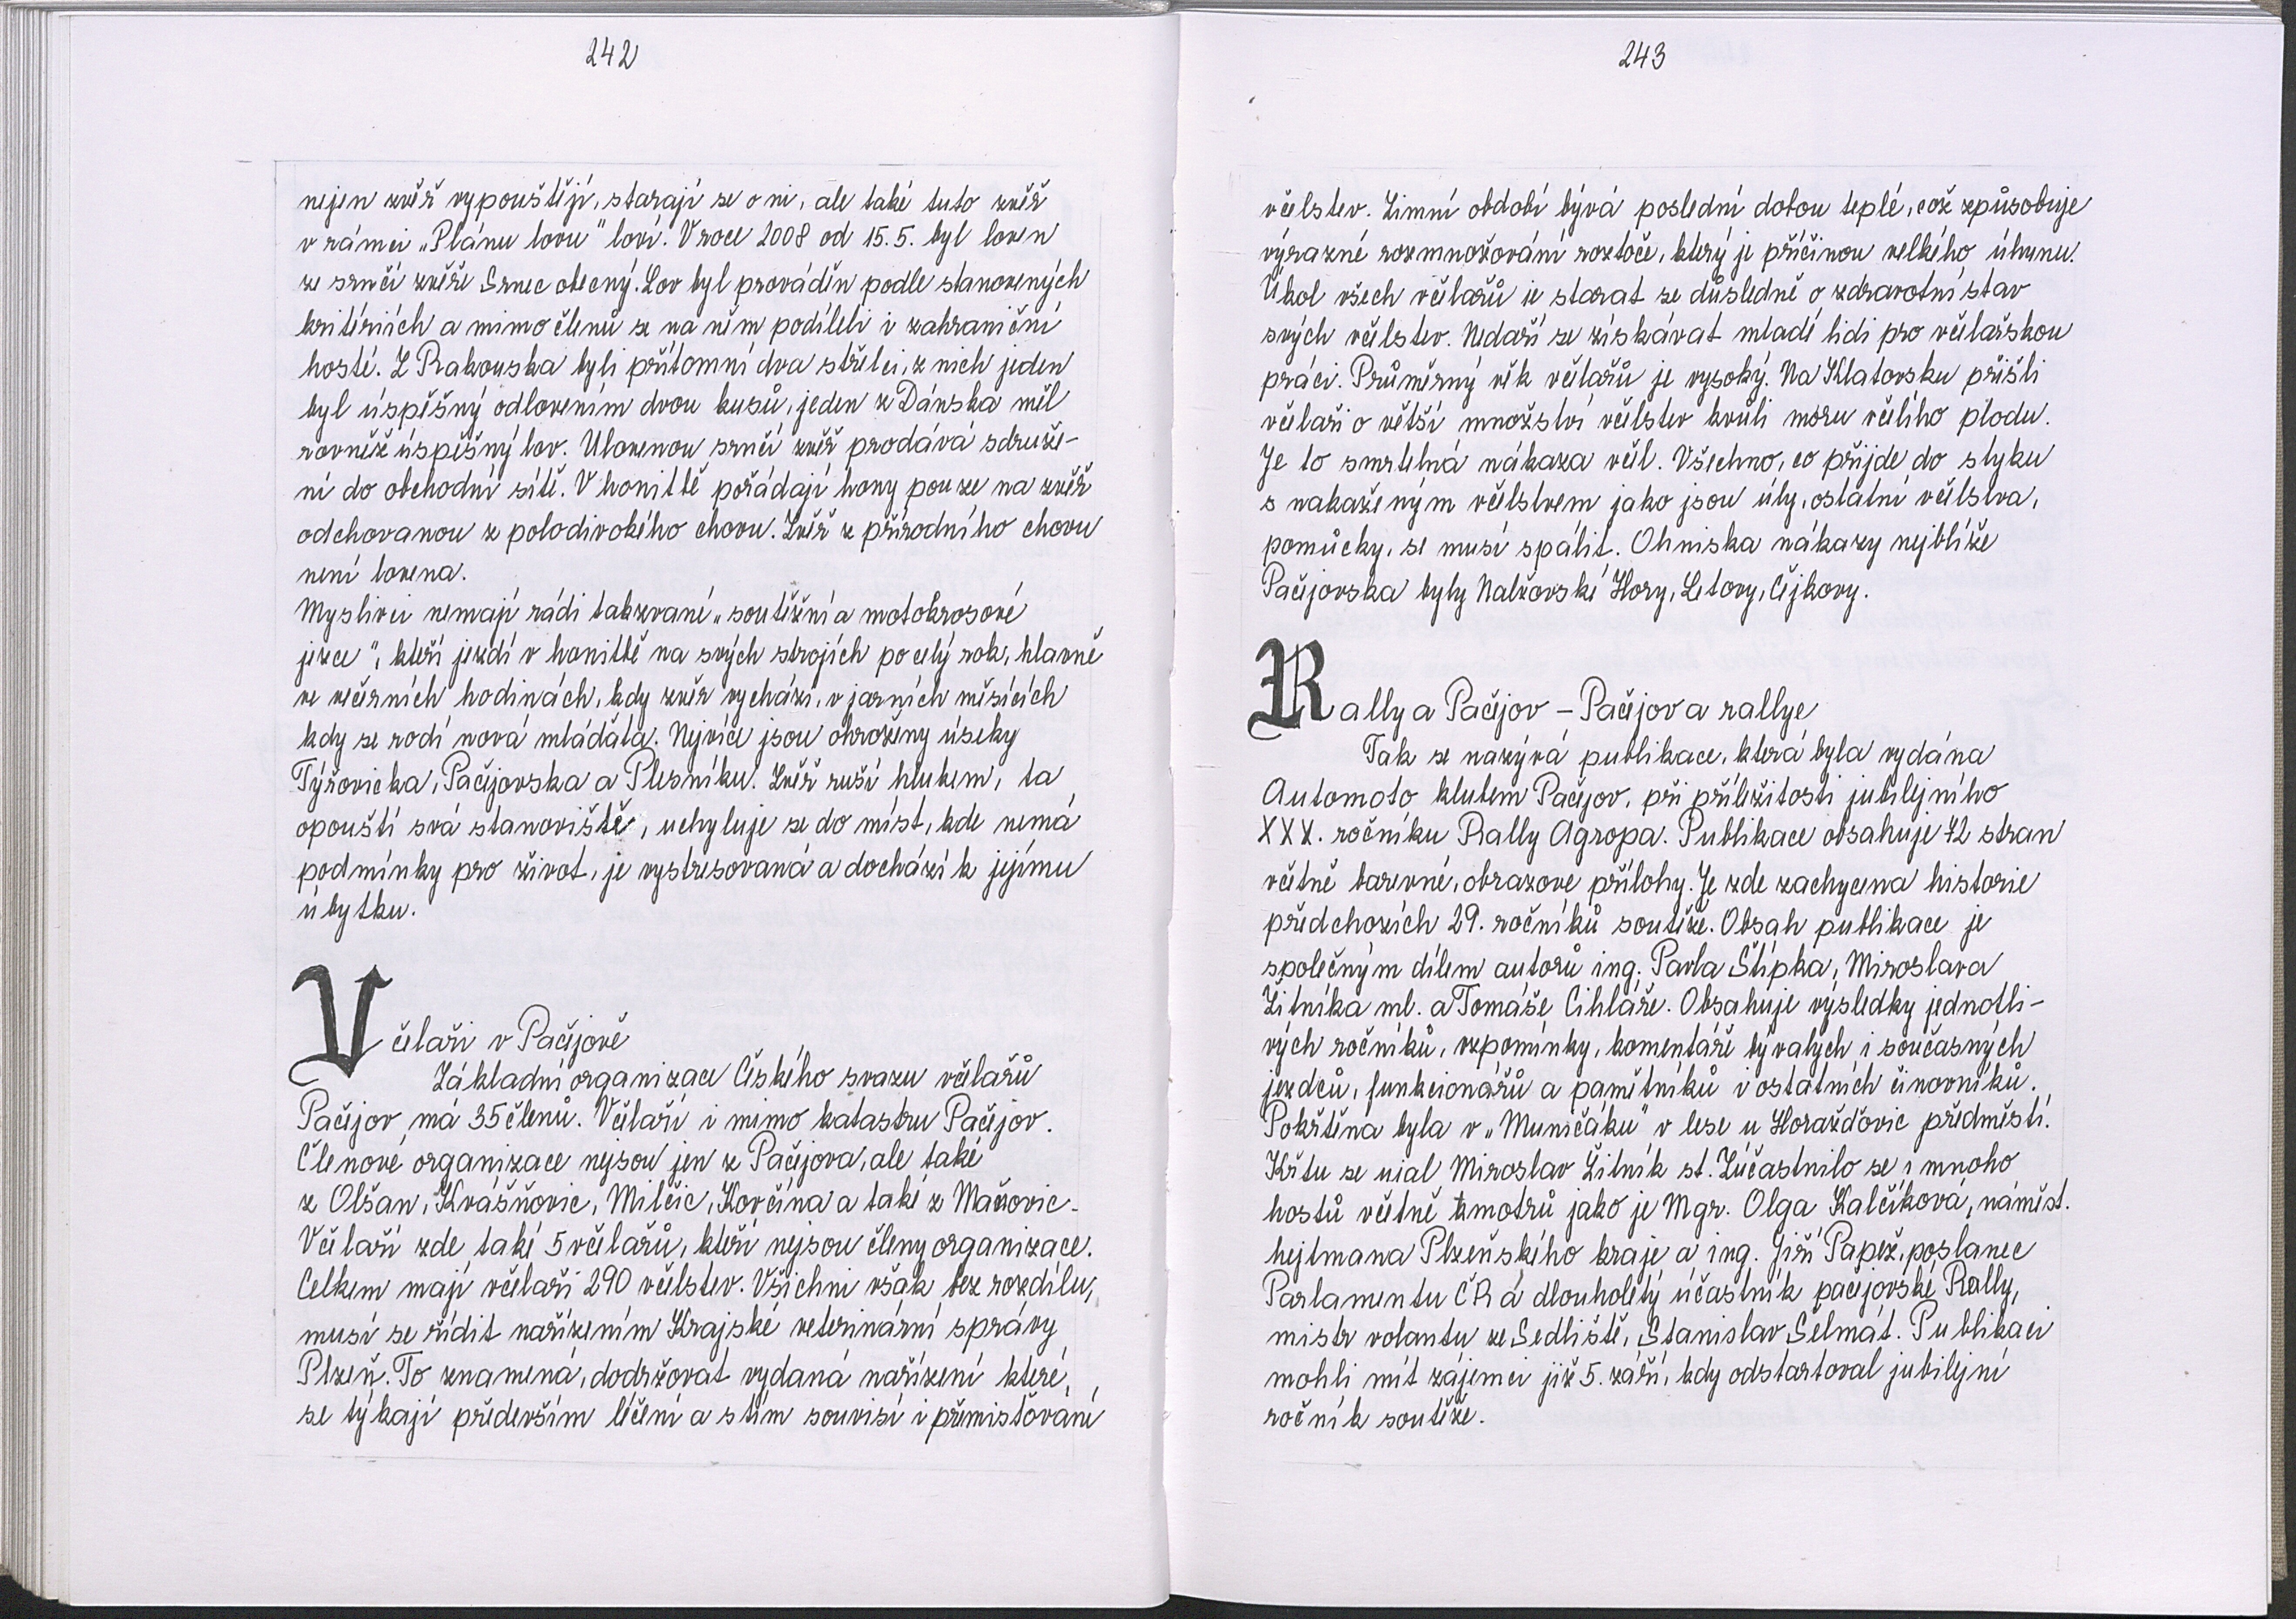 242
nejen zvěř vypouštějí, starají se o ni, ale také tuto zvěř
v rámci „Plánu lovu" loví. V roce 2008 od 15.5. byl loven
ze srnčí zvěře Srnec obecný. Lov byl prováděn podle stanovených
kritériích a mimo členů se na něm podíleli i zahraniční
hosté. Z Rakouska byli přítomní dva střelci, z nich jeden
byl úspěšný odlovením dvou kusů, jeden z Dánska měl
rovněž úspěšný lov. Ulovenou srnčí zvěř prodává sdruže-
ní do obchodní sítě. V honitbě pořádají hony pouze na zvěř
odchovanou z polodivokého chovu. Zvěř z přírodního chovu
není lovena.
Myslivci nemají rádi takzvané „soutěžní a motokrosové
jezce", kteří jezdí v honitbě na svých strojích po celý rok, hlavně
ve večerních hodinách, kdy zvěř vychází, v jarních měsících
kdy se rodí nová mláďata. Nejvíce jsou ohroženy úseky
Týřovicka, Pačejovska a Plesníku. Zvěř ruší hlukem, ta
opouští svá stanoviště, uchyluje se do míst, kde nemá
podmínky pro život, je vystresovaná a dochází k jejímu
úbytku.
Včelaři v Pačejově
Základní organizace Českého svazu včelařů
Pačejov má 35 členů. Včelaří i mimo katastru Pačejov.
Členové organizace nejsou jen z Pačejova, ale také
z Olšan, Kvášňovic, Milčic, Kovčína a také z Maňovic.
Včelaří zde také 5 včelařů, kteří nejsou členy organizace.
Celkem mají včelaři 290 včelstev. Všichni však bez rozdílu,
musí se řídit nařízením Krajské veterinární správy
Plzeň. To znamená, dodržovat vydaná nařízení které,
se týkají především léčení a s tím souvisí i přemisťování
243
včelstev. Zimní období bývá poslední dobou teplé, což způsobuje
výrazné rozmnožování roztoče, který je příčinou velkého úhynu.
Úkol všech včelařů je starat se důsledně o zdravotní stav
svých včelstev. Nedaří se získávat mladé lidi pro včelařskou
práci. Průměrný věk včelařů je vysoký. Na Klatovsku přišli
včelaři o větší množství včelstev kvůli moru včelího plodu.
Je to smrtelná nákaza včel. Všechno, co přijde do styku
s nakaženým včelstvem jako jsou úly, ostatní včelstva,
pomůcky, se musí spálit. Ohniska nákazy nejblíže
Pačejovska byly Nalžovské Hory, Letovy, Čejkovy.
Rally a Pačejov – Pačejov a rallye
Tak se nazývá publikace, která byla vydána
Automoto klubem Pačejov, při příležitosti jubilejního
XXX. ročníku Rally Agropa. Publikace obsahuje 72 stran
včetně barevné, obrazové přílohy. Je zde zachycena historie
předchozích 29. ročníků soutěže. Obsah publikace je
společným dílem autorů ing. Pavla Štípka, Miroslava
Žitníka ml. a Tomáše Cihláře. Obsahuje výsledky jednotli-
vých ročníků, vzpomínky, komentáře bývalých i současných
jezdců, funkcionářů a pamětníků i ostatních činovníků.
Pokřtěna byla v „Muničáku" v lese u Horažďovic předměstí.
Křtu se ujal Miroslav Žitník st. Zúčastnilo se i mnoho
hostů včetně kmotrů jako je Mgr. Olga Kalčíková, náměst.
hejtmana Plzeňského kraje a ing. Jiří Papež, poslanec
Parlamentu ČR a dlouholetý účastník pačejovské Rally,
mistr volantu ze Sedliště, Stanislav Šelmát. Publikaci
mohli mít zájemci již 5. září, kdy odstartoval jubilejní
ročník soutěže.